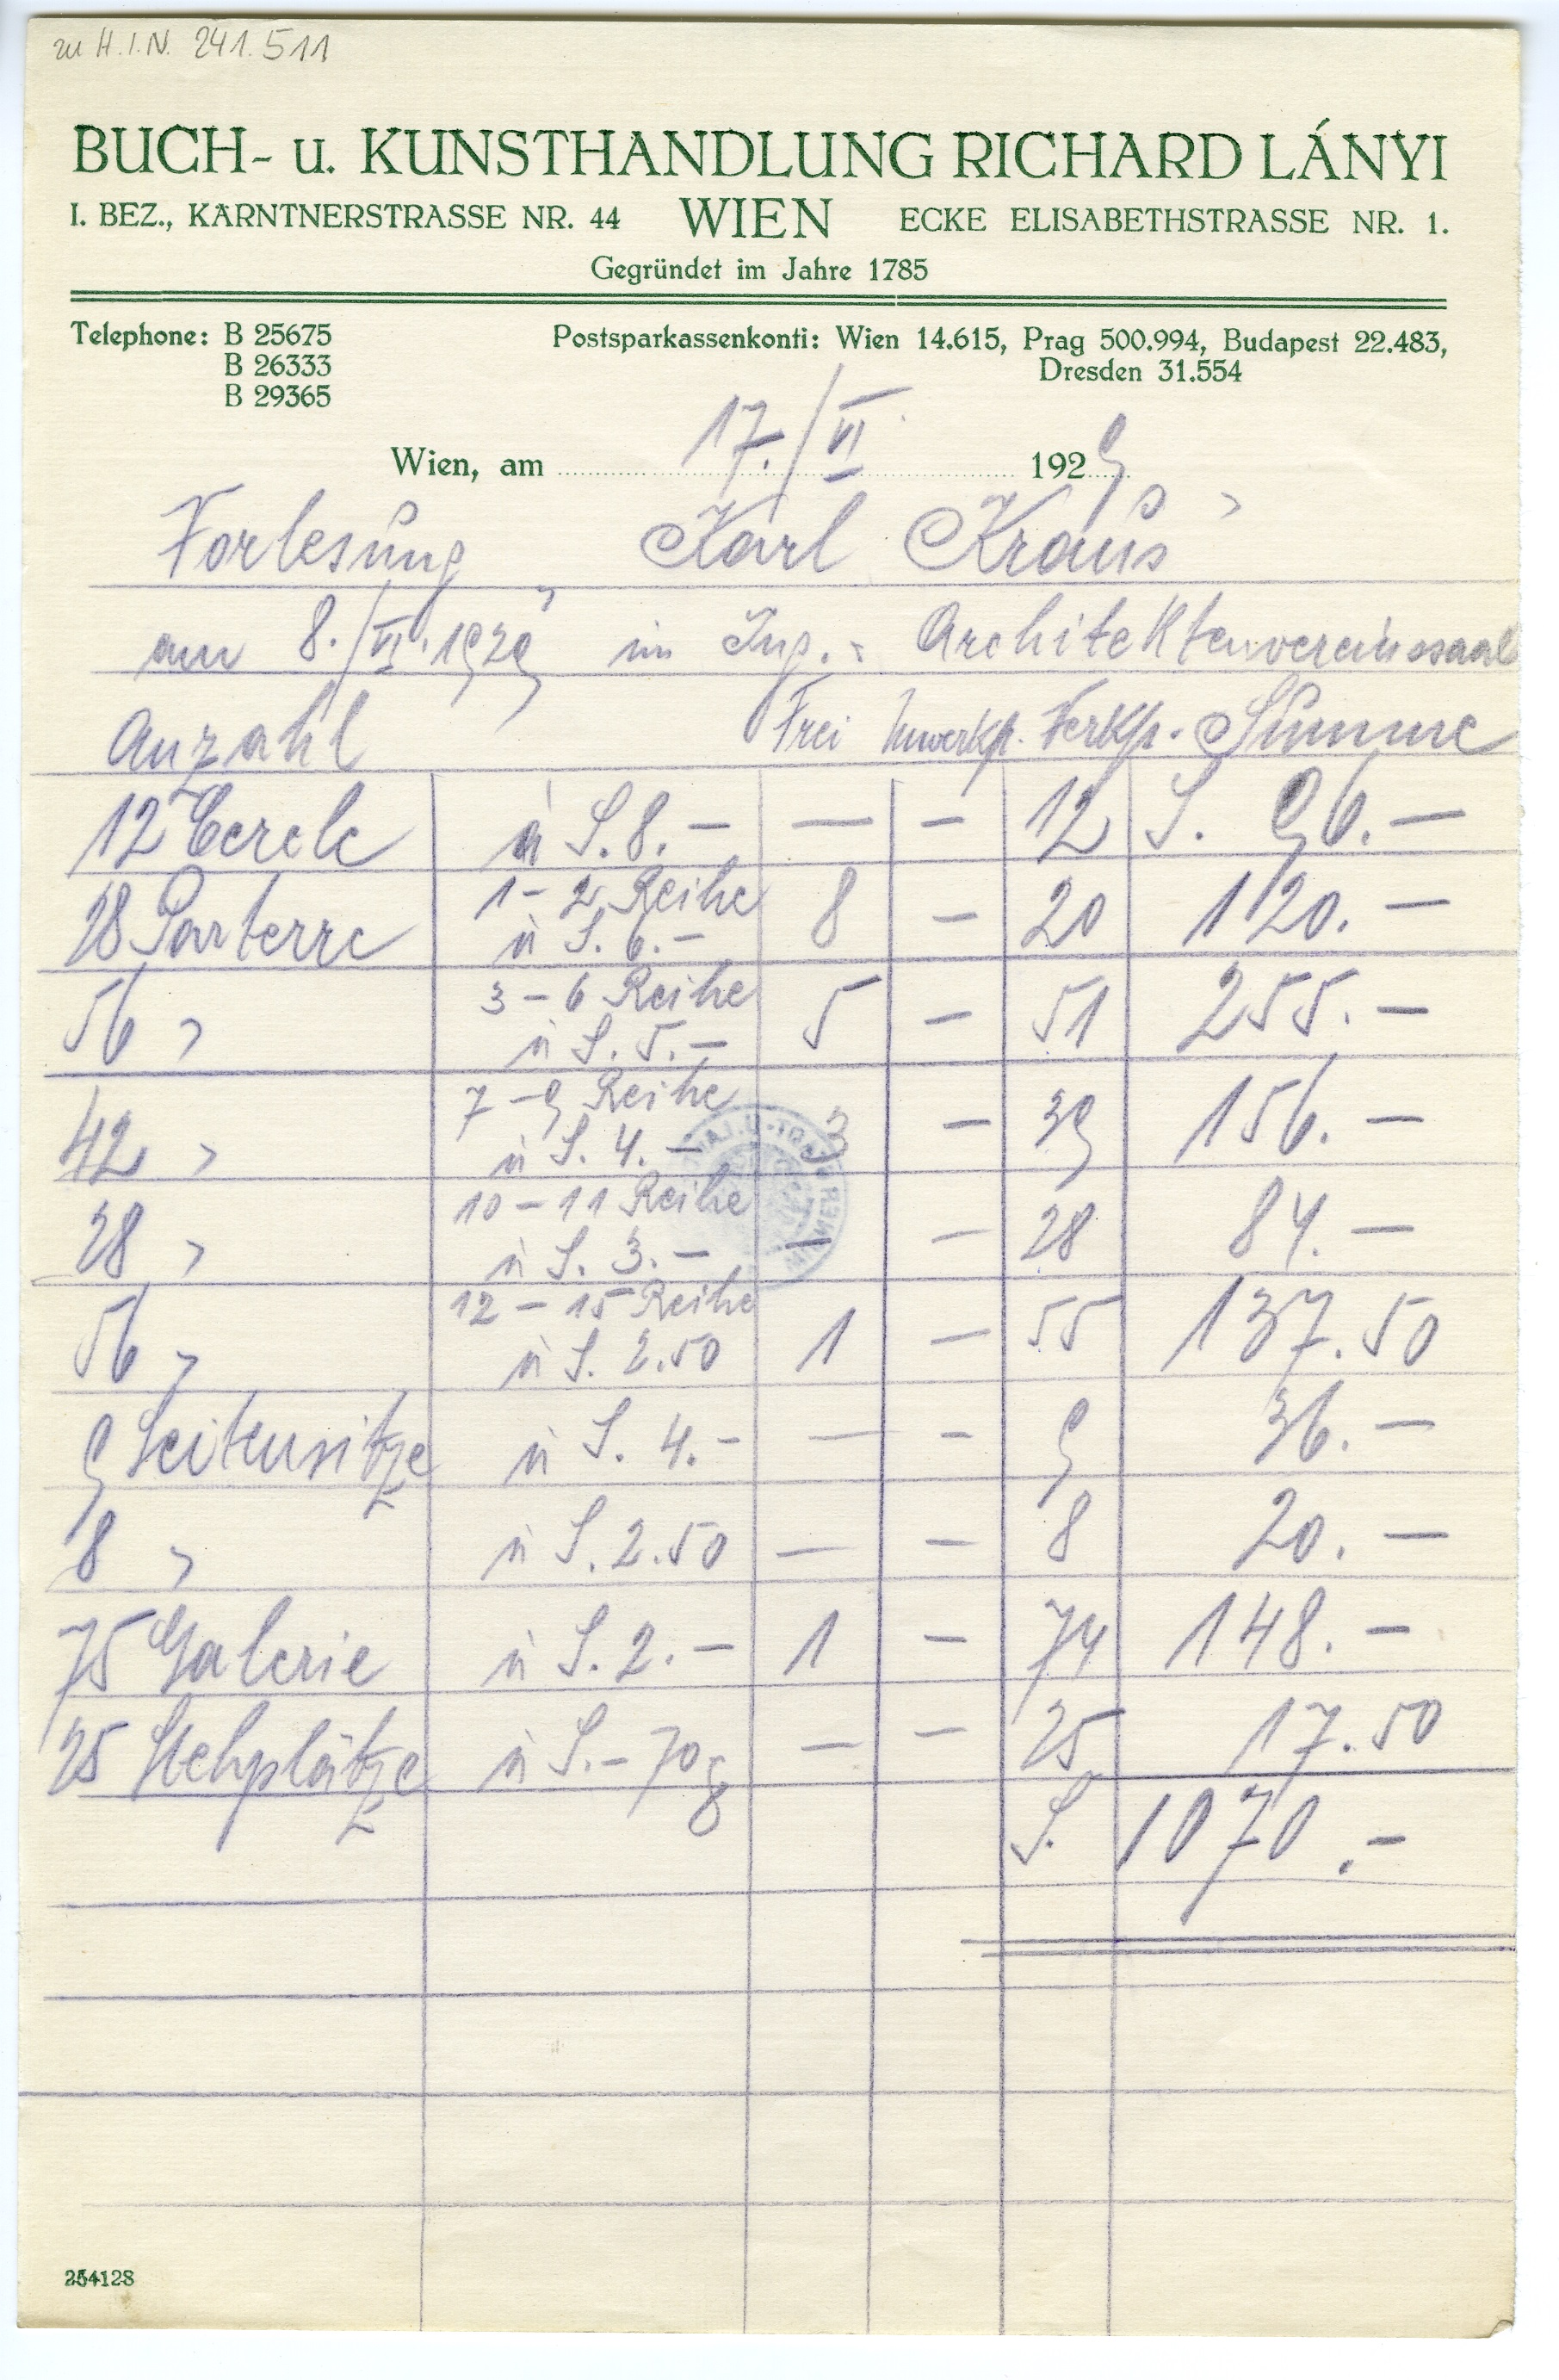 zu H.I.N. 241.511
BUCH- u. KUNSTHANDLUNG RICHARD LÁNYI
I. BEZ., KÄRNTNERSTRASSE NR. 44 WIEN ECKE ELISABETHSTRASSE NR. 1.
Gegründet im Jahre 1785
Telephone: B 25675 Postsparkassenkonti: Wien 14.615, Prag 500.994, Budapest 22.483,
B 26333 Dresden 31.554
B 29365
Wien, am 17./VI 1929
Vorlesung Karl Kraus
am 8./VI. 1929 im Ing.- Architektenvereinssaal
Anzahl Frei Unverkf. Verkf. Summe
12 Cercle à S. 8.— — — 12 S. 96.—
28 Parterre 1-2 Reihe à S. 6.— 8 — 20 120.—
56 " 3-6 Reihe à S. 5.— 5 — 51 255.—
42 " 7-9 Reihe à S. 4.— 3 — 39 156.—
28 " 10-11 Reihe à S. 3.— — — 28 84.—
56 " 12-15 Reihe à S. 2.50 1 — 55 137.50
9 Seitensitze à S. 4.— — — 9 36.—
8 " à S. 2.50 — — 8 20.—
75 Galerie à S. 2.— 1 — 74 148.—
25 Stehplätze à S.—70 g — — 25 17.50
S. 1070.—
254128